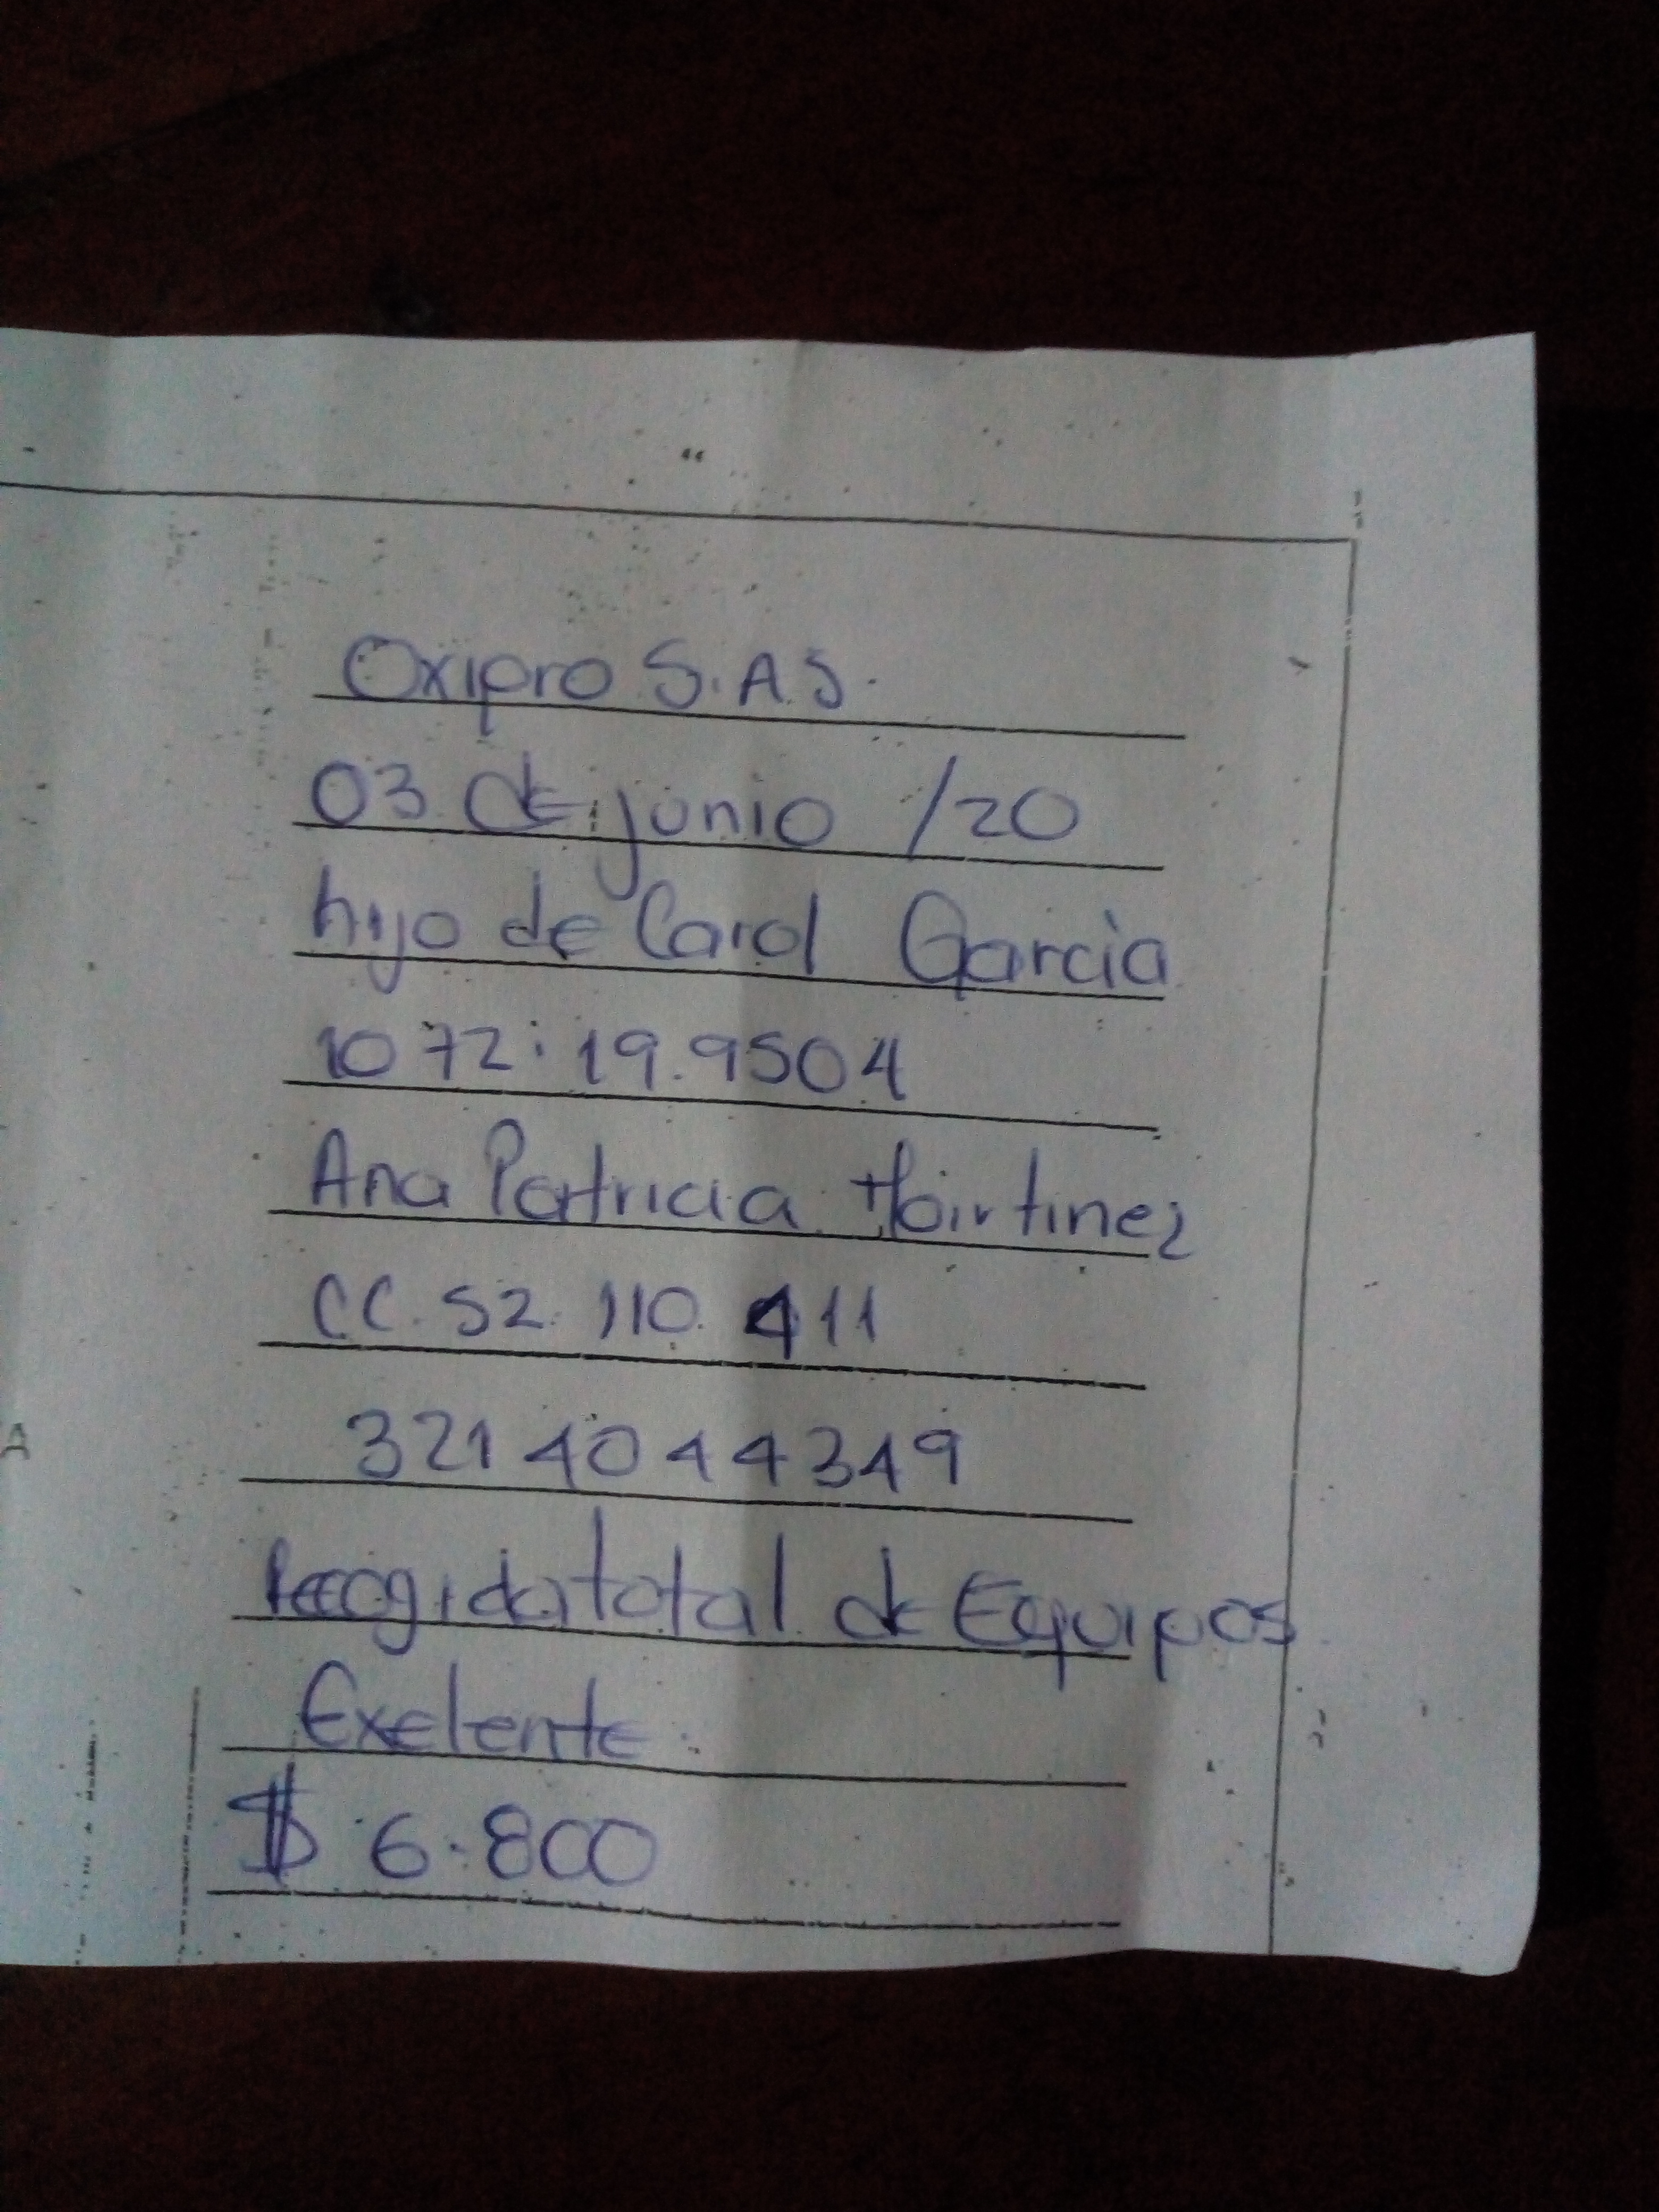 Oxipro S.A.S.
03 de junio /20
hijo de Carol Garcia
1072:19.9504
Ana Patricia Martinez
CC. 52. 110. 411
321 4044349
Recogida total de Equipos
Exelente
$ 6.800
A